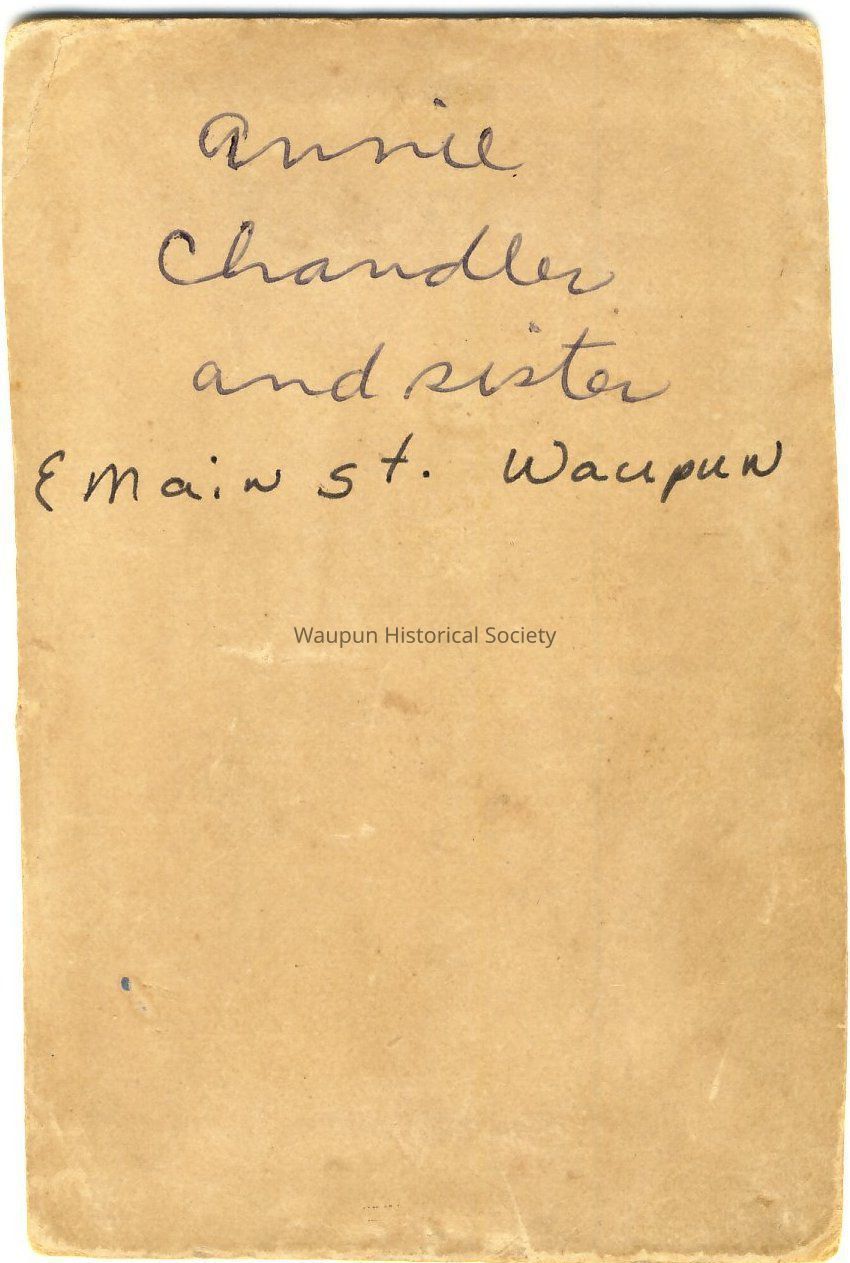 Annie
Chandler
and sister
E Main St. Waupun
Waupun Historical Society